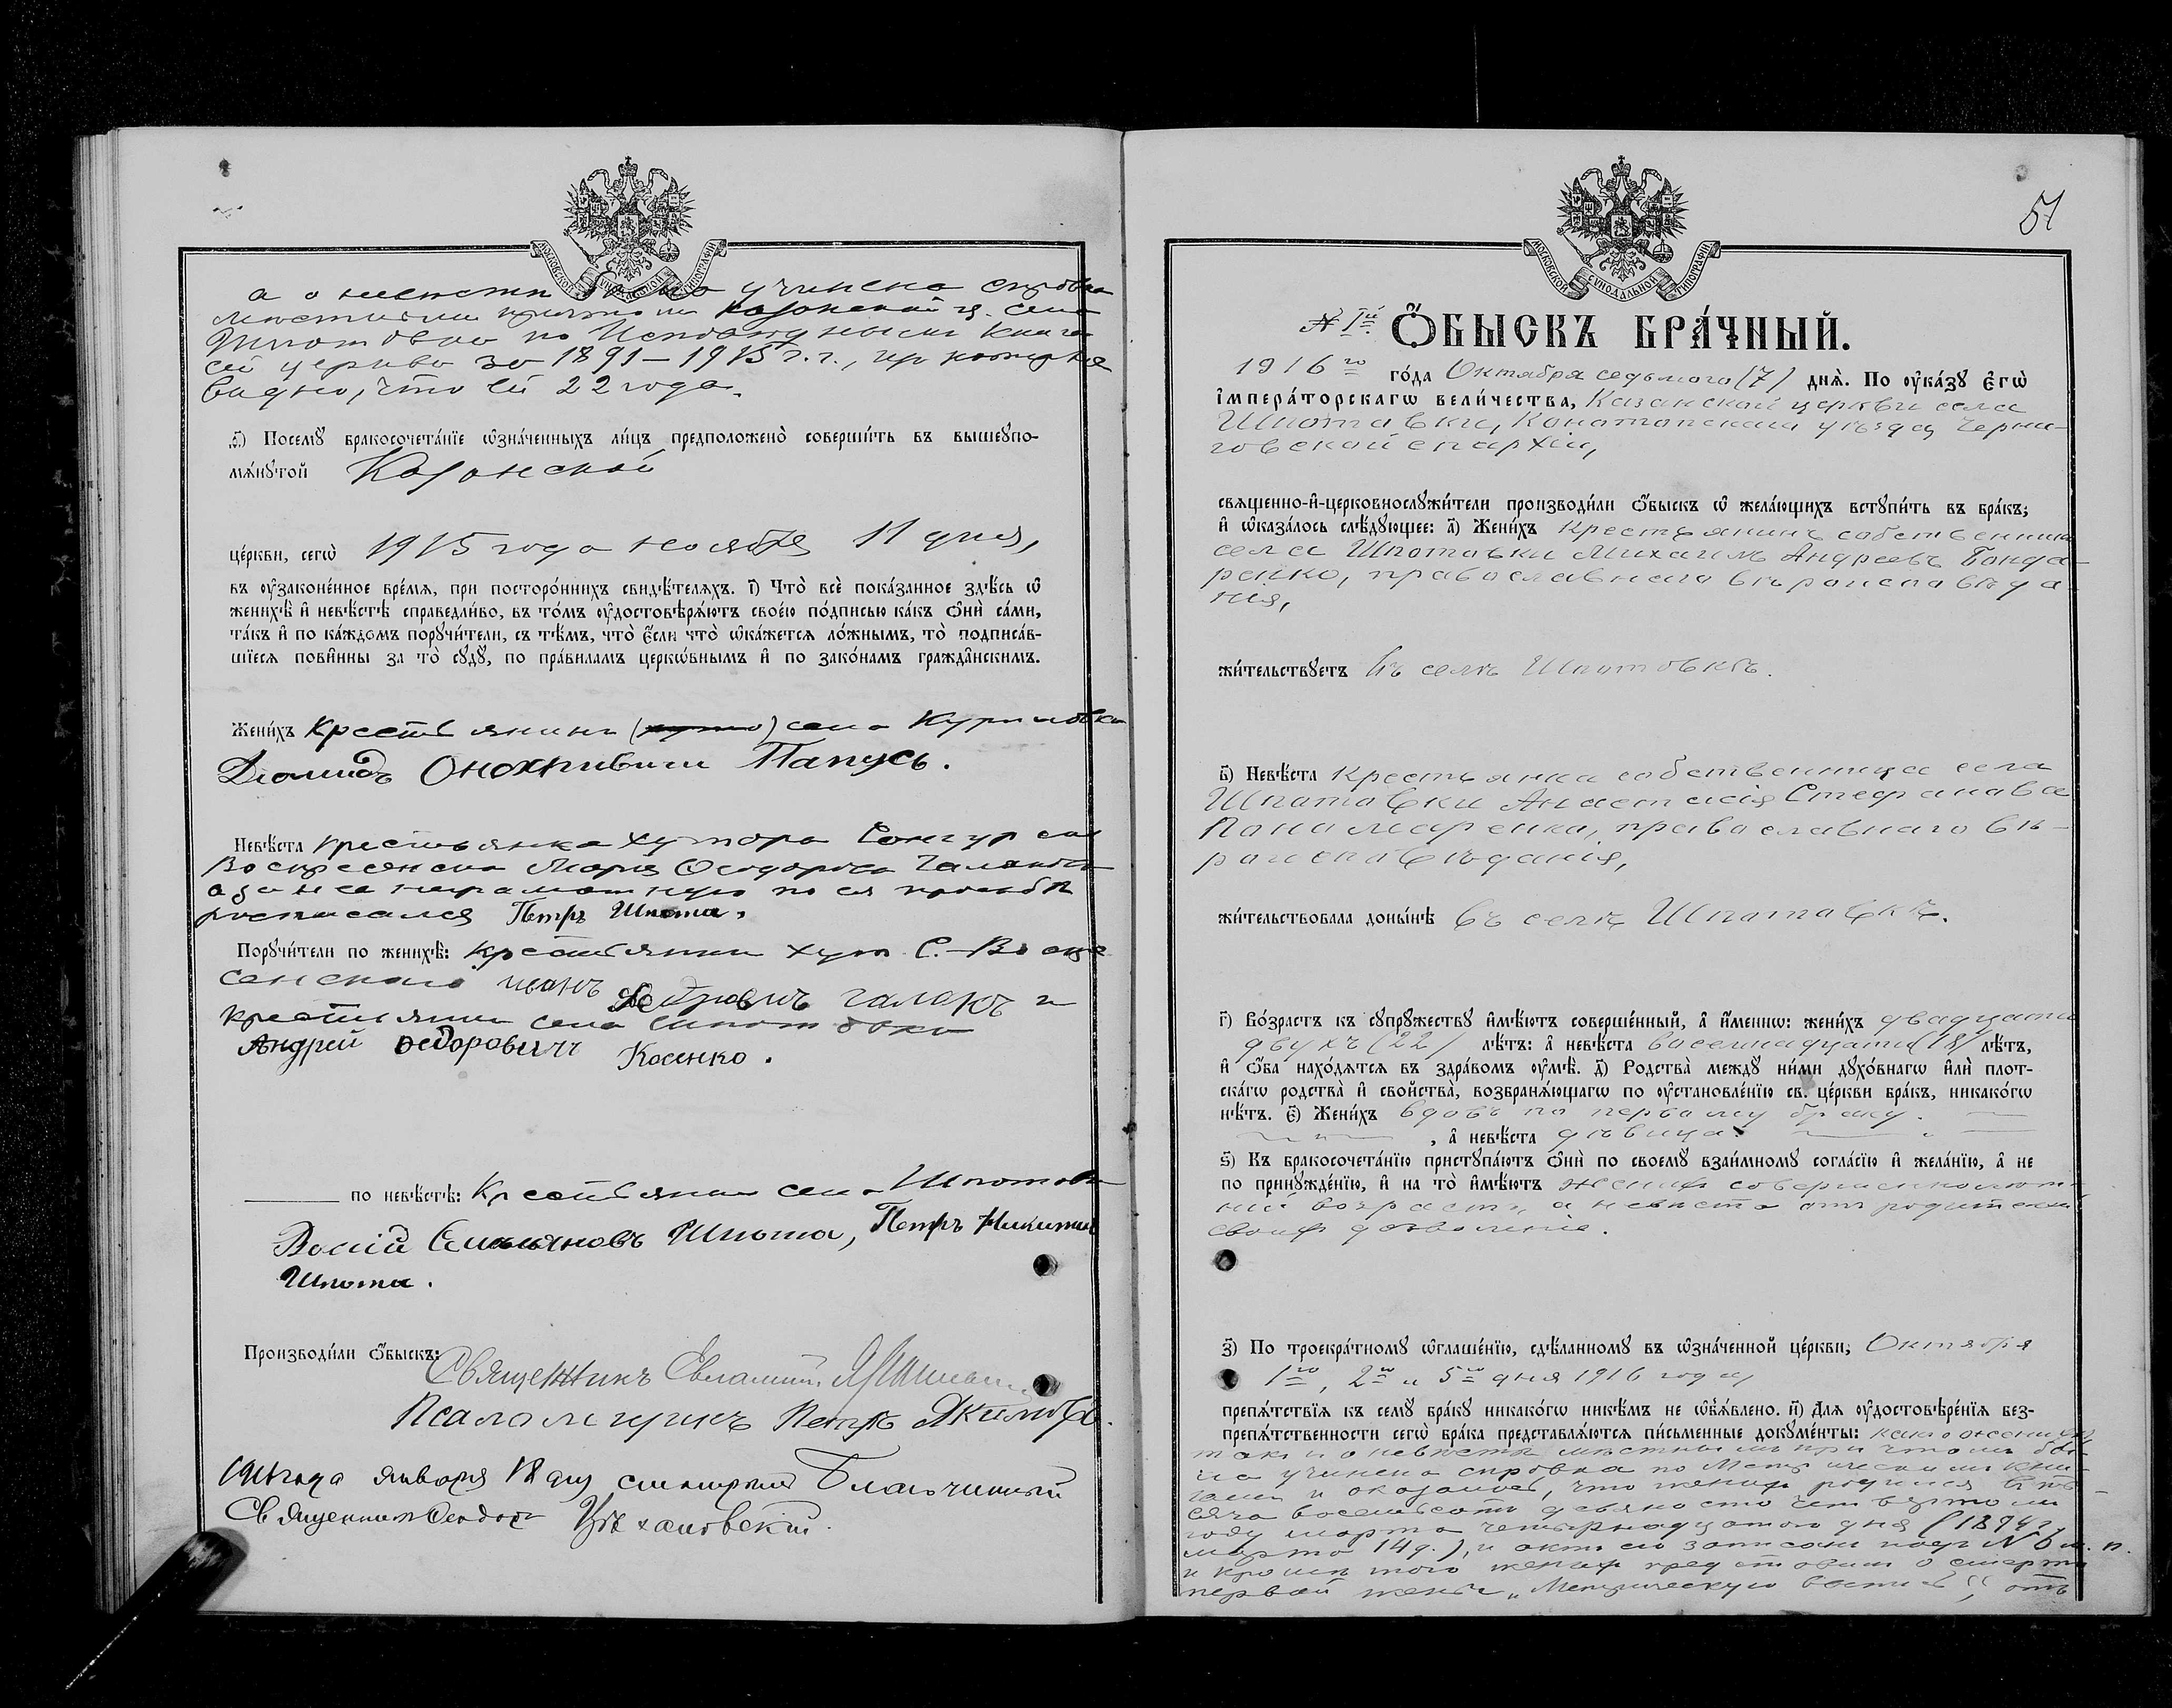 а о невесте была учинена справка
местным причтом Казонской ц. села
Шпотовки по Исповедным книгам
сей церкви за 1891–1915 г.г., из которыхъ
видно, что ей 22 года.
д҃) Посемꙋ бракосочета́нїе ѡ҆зна́ченныхъ ли́цъ предположено̀ соверши́ть въ вышеꙋпо-
мѧ́нꙋтой Казонской
це́ркви, сегѡ̀ 1915 года ноября 11 дня,
въ ᲂу҆зако́ненное вре́мѧ, при посторо́ннихъ свидѣ́телѧхъ. і҃) Что̀ всѐ пока́занное здѣ́сь ѡ҆
женихѣ̀ и҆ невѣ́стѣ справедли́во, въ то́мъ ᲂу҆достовѣрѧ́ютъ свое́ю по́дписью ка́къ ѻ҆нѝ са́ми,
та́къ и҆ по ка́ждомъ порꙋчи́тели, съ тѣ́мъ, что̀ є҆́сли что̀ ѡ҆ка́жетсѧ ло́жнымъ, то̀ подписа́в-
шїесѧ пови́нны за то̀ сꙋдꙋ̀, по пра́виламъ церко́внымъ и҆ по зако́намъ гражда́нскимъ.
Жени́хъ Крестьянинъ села Куриловки
Діомидъ Онохріевичъ Папусь.
Невѣ́ста крестьянка хутора Сонгур ско
Воскресенска Марія Ѳеодорова Галакъ
а за нее неграмотную по ея просьбѣ
росписался Петръ Шпота.
Порꙋчи́тели по женихѣ̀: крестьянин хут. С.-Воскре
сенского иванъ галакъ и
крестьянин села Шпотовки
Андрей Ѳедоровичъ Косенко.
по невѣ́стѣ: Крестьянин села Шпотовки
Васій Емельяновъ Шпота, Петръ Никитин
Шпота.
Производи́ли ѻ҆́быскъ: Священникъ Евлампій
Псаломщикъ Петръ Якимовъ.
1916 года января 18 дня смотрѣлъ Благочинный
Священникъ Ѳеодоръ Цѣхановскій.
51
№ 1й Ѻ҆́БЫСКЪ БРА́ЧНЫЙ.
1916го го́да Октября седьмого (7) днѧ̀. По ᲂу҆ка́зꙋ Є҆гѡ̀
І҆мпера́торскагѡ вели́чества, Казанской церкви села
Шпотовки, Конотопскаго уѣзда, Черни-
говской епархіи,
свѧще́нно-и҆-церковнослꙋжи́тели производи́ли ѻ҆́быскъ ѡ҆ жела́ющихъ встꙋпи́ть въ бра́къ;
и҆ ѡ҆каза́лось слѣ́дꙋющее: а҃) Жени́хъ крестьянинъ собственникъ
села Шпотовки Михаилъ Андреевъ Бонда-
ренко, православнаго вѣроисповѣда
нія,
жи́тельствꙋетъ въ селѣ Шпотовкѣ.
в҃) Невѣ́ста крестьянка собственница села
Шпотовки Анастасія Стефанова
Понамаренко, православнаго вѣ-
роисповѣданія,
жи́тельствовала доны́нѣ въ селѣ Шпотовкѣ.
г҃) Во́зрастъ къ сꙋпрꙋ́жествꙋ и҆мѣ́ютъ соверше́нный, а҆ и҆́меннѡ: жени́хъ двадцати
двухъ (22) лѣ́тъ: а҆ невѣ́ста восемнадцати (18) лѣ́тъ,
и҆ ѻ҆́ба нахо́дѧтсѧ въ здра́вомъ ᲂу҆мѣ̀. д҃) Родства̀ междꙋ̀ ни́ми дꙋхо́внагѡ и҆лѝ плот-
ска́гѡ родства̀ и҆ сво́йства̀, возбранѧ́ющагѡ по ᲂу҆становле́нїю св. це́ркви бра́къ, никако́гѡ
нѣ́тъ. є҃) Жени́хъ вдовъ по первому браку.
, а҆ невѣ́ста дѣвица.
ѕ҃) Къ бракосочета́нїю пристꙋпа́ютъ ѻ҆нѝ по своемꙋ̀ взаи́мномꙋ согла́сїю и҆ жела́нїю, а҆ не
по принꙋжде́нїю, и҆ на то̀ и҆мѣ́ютъ жених совершеннолѣт-
ній возрастъ, а невѣста отъ родителей
своихъ дозволеніе.
з҃) По троекра́тномꙋ ѡ҆глаше́нїю, сдѣ́ланномꙋ въ ѡ҆зна́ченной це́ркви; Октября
1го, 2го и 5го дня 1916 года,
препѧ́тствїѧ къ семꙋ̀ бра́кꙋ никако́гѡ никѣ́мъ не ѡ҆б̾ѧ́влено. и҃) Длѧ ᲂу҆достовѣре́нїѧ без-
препѧ́тственности сегѡ̀ бра́ка представлѧ́ютсѧ пи́сьменные докꙋме́нты: какъ о женихѣ
такъ и о невѣстѣ мѣстнымъ причтомъ бы-
ла учинена справка по Метрическимъ кни-
гамъ и оказалось, что женихъ родился въ ты-
сяча восемьсотъ девяносто четвертомъ
году марта четырнадцатого дня (1894 г.
марта 14 д.), и актъ его записанъ подъ № 6 м. п.
и кромѣ того женихъ представилъ о смерти
первой жены „Метрическую выпись", отъ